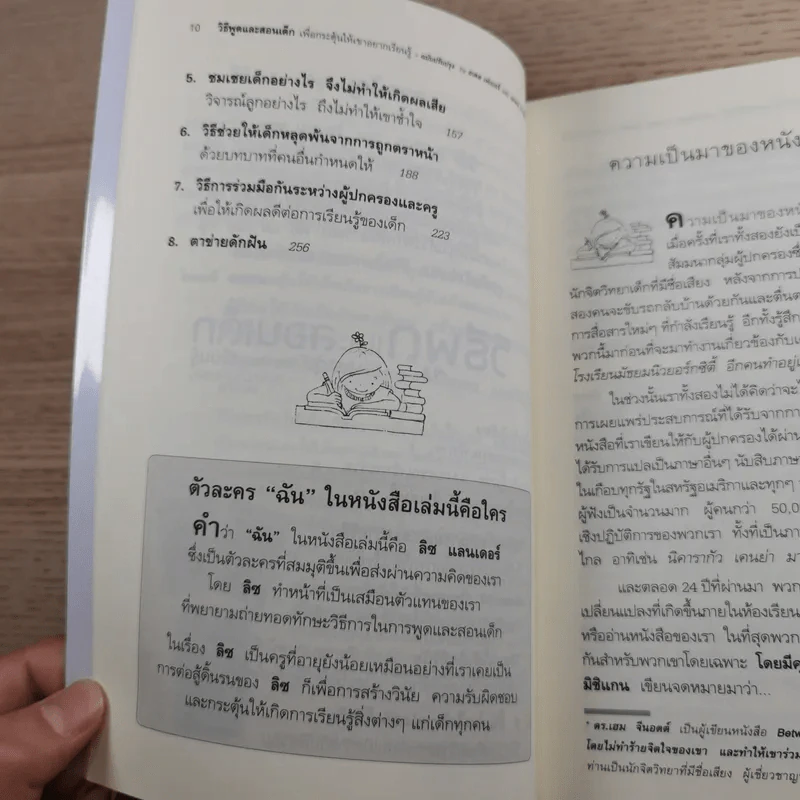 10 วิธีพูดและสอนเด็ก เพื่อกระตุ้นให้เขาอยากเรียนรู้
5. ชมเชยเด็กอย่างไร จึงไม่ทำให้เกิดผลเสีย
วิจารณ์ลูกอย่างไร ถึงไม่ทำให้เขาช้ำใจ 157
6. วิธีช่วยให้เด็กหลุดพ้นจากการถูกตราหน้า
ด้วยบทบาทที่คนอื่นกำหนดให้ 188
7. วิธีการร่วมมือกันระหว่างผู้ปกครองและครู
เพื่อให้เกิดผลดีต่อการเรียนรู้ของเด็ก 223
8. ตาข่ายดักฝัน 256
ตัวละคร “ฉัน” ในหนังสือเล่มนี้คือใคร
คำว่า “ฉัน” ในหนังสือเล่มนี้คือ ลิซ แลนเดอร์
ซึ่งเป็นตัวละครที่สมมุติขึ้นเพื่อส่งผ่านความคิดของเรา
โดย ลิซ ทำหน้าที่เป็นเสมือนตัวแทนของเรา
ที่พยายามถ่ายทอดทักษะวิธีการในการพูดและสอนเด็ก
ในเรื่อง ลิซ เป็นครูที่อายุยังน้อยเหมือนอย่างที่เราเคยเป็น
การต่อสู้ดิ้นรนของ ลิซ ก็เพื่อการสร้างวินัย ความรับผิดชอบ
และกระตุ้นให้เกิดการเรียนรู้สิ่งต่างๆ แก่เด็กทุกคน
ความเป็นมาของหนัง
ความเป็นมาของหนั
เมื่อครั้งที่เราทั้งสองยังเป็
สัมมนากลุ่มผู้ปกครองซึ่
นักจิตวิทยาเด็กที่มีชื่อเสียง หลังจากการป
สองคนจะขับรถกลับบ้านด้วยกันและตื่นต
การสื่อสารใหม่ๆ ที่กำลังเรียนรู้ อีกทั้งรู้สึก
พวกนี้มาก่อนที่จะมาทำงานเกี่ยวข้องกับเ
โรงเรียนมัธยมนิวยอร์กซิตี้ อีกคนทำอยู่เ
ในช่วงนั้นเราทั้งสองไม่ได้คิดว่าจะ
การเผยแพร่ประสบการณ์ที่ได้รับจากกา
หนังสือที่เราเขียนให้กับผู้ปกครองได้ผ่าน
ได้รับการแปลเป็นภาษาอื่นๆ นับสิบภาษา
ในเกือบทุกรัฐในสหรัฐอเมริกาและทุกๆ
ผู้ฟังเป็นจำนวนมาก ผู้คนกว่า 50,0
เชิงปฏิบัติการของพวกเรา ทั้งที่เป็นภา
ไกล อาทิเช่น นิคารากัว เคนย่า มา
และตลอด 24 ปีที่ผ่านมา พวก
เปลี่ยนแปลงที่เกิดขึ้นภายในห้องเรียน
หรืออ่านหนังสือของเรา ในที่สุดพวก
กันสำหรับพวกเขาโดยเฉพาะ โดยมีคุ
มิชิแกน เขียนจดหมายมาว่า...
* ดร.เฮม จีนอตต์ เป็นผู้เขียนหนังสือ Betw
โดยไม่ทำร้ายจิตใจของเขา และทำให้เขาร่วม
ท่านเป็นนักจิตวิทยาที่มีชื่อเสียง ผู้เชี่ยวชาญ